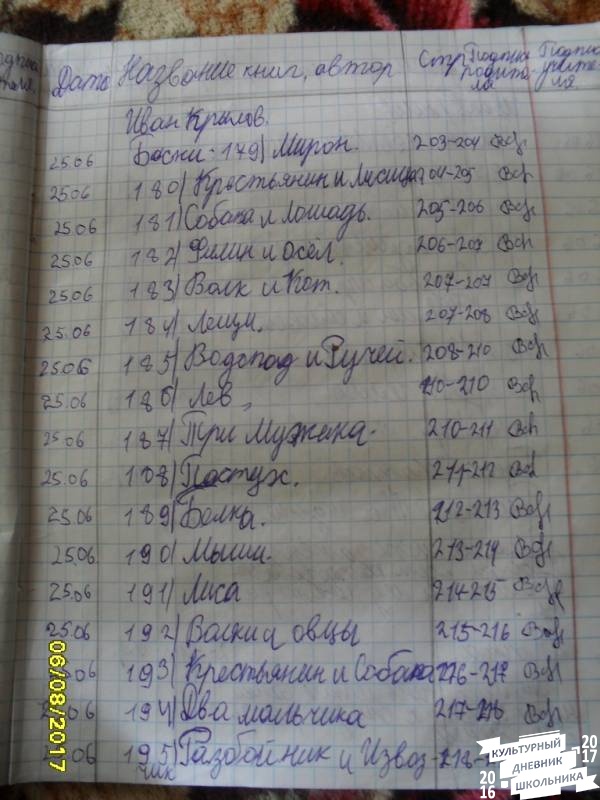 Дата Название книг, автор Стр. Подпись родителя Подпись учителя
Иван Крылов.
25.06 Басни - 179) Мирон. 203-204
25.06 180) Крестьянин и Лисица 204-205
25.06 181) Собака и Лошадь. 205-206
25.06 182) Филин и осёл. 206-207
25.06 183) Волк и Кот. 207-207
25.06 184) Лещи. 207-208
25.06 185) Водопад и Ручей. 208-210
25.06 186) Лев 210-210
25.06 187) Три Мужика 210-211
25.06 188) Пастух. 211-212
25.06 189) Белка. 212-213
25.06 190) Мыши. 213-214
25.06 191) Лиса 214-215
25.06 192) Волки и овцы 215-216
25.06 193) Крестьянин и Собака 216-217
25.06 194) Два мальчика 217-218
25.06 195) Разбойник и Извоз- 218-
чик
06/08/2017
КУЛЬТУРНЫЙ
ДНЕВНИК
ШКОЛЬНИКА
2016
2017